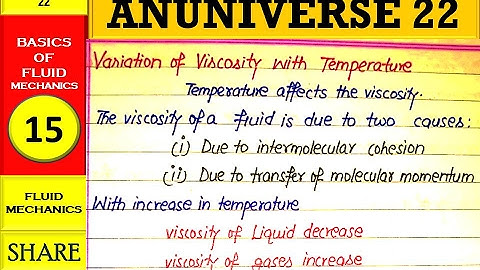 22
BASICS
OF
FLUID
MECHANICS
15
FLUID
MECHANICS
SHARE
ANUNIVERSE 22
Variation of Viscosity with Temperature
Temperature affects the viscosity.
The viscosity of a fluid is due to two causes:
(i) Due to intermolecular cohesion
(ii) Due to transfer of molecular momentum
With increase in temperature
viscosity of Liquid decrease
viscosity of gases increase